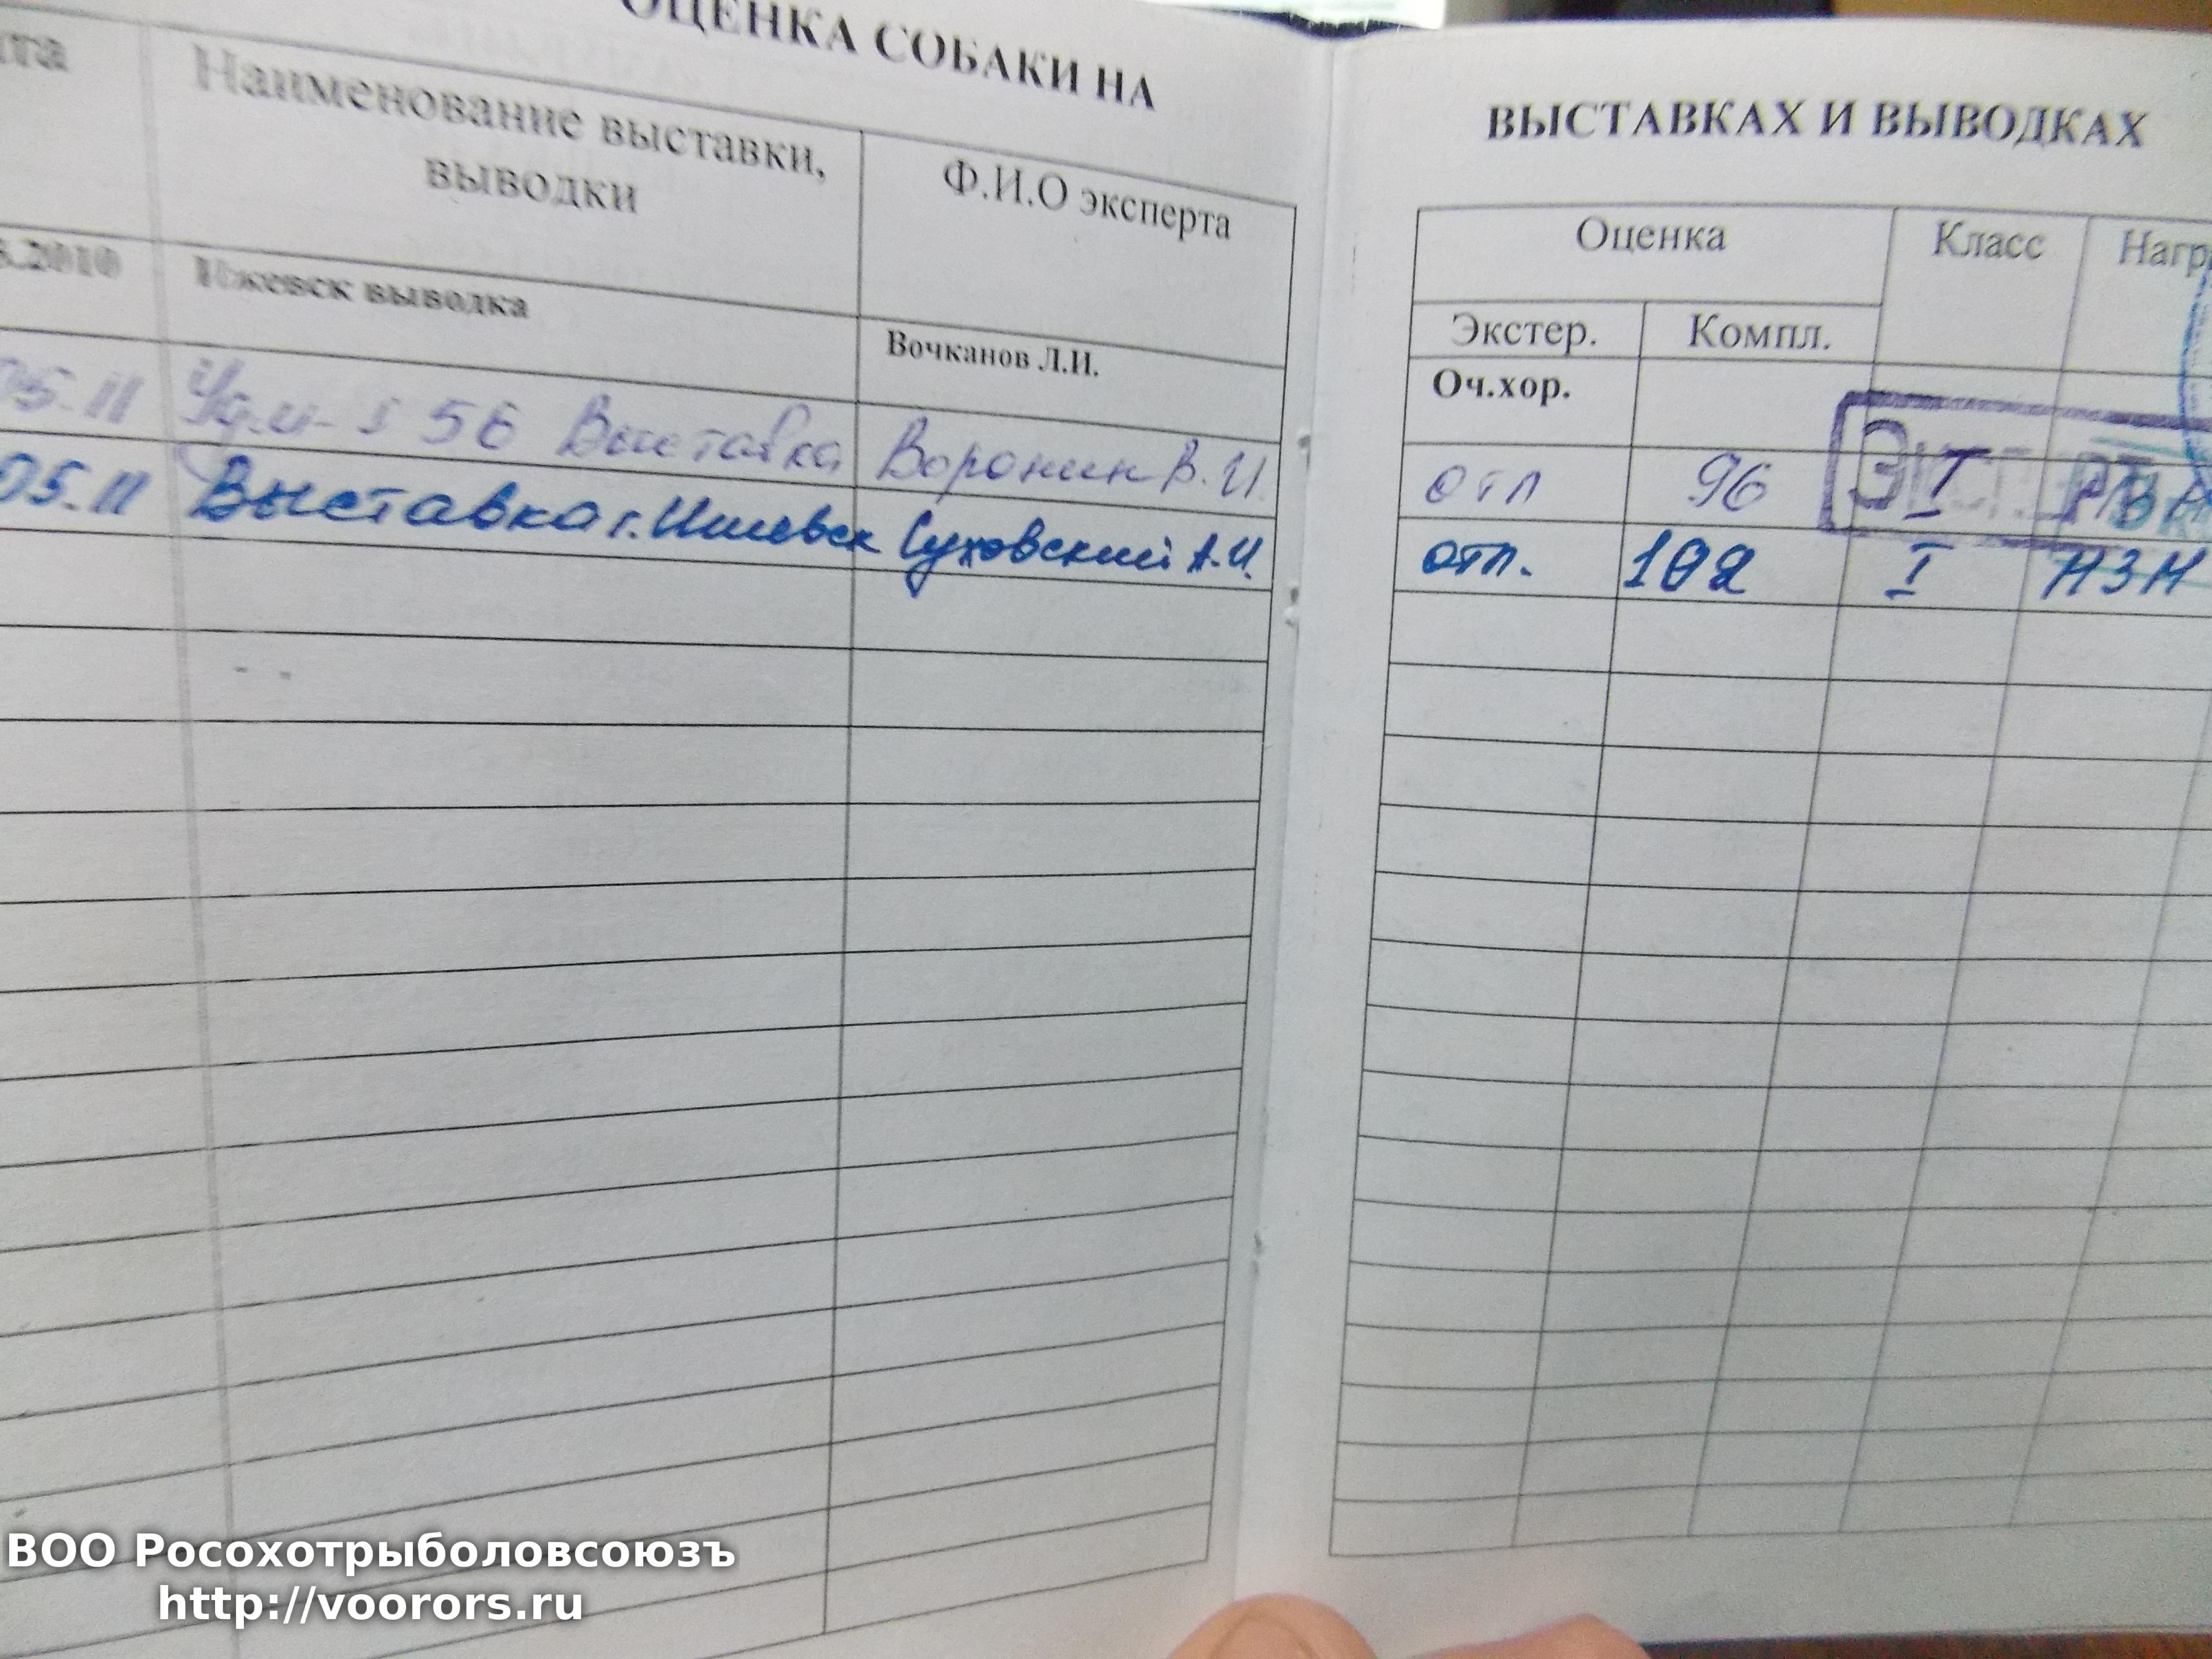 ОЦЕНКА СОБАКИ НА
Наименование выставки,
выводки
Ф.И.О эксперта
.2010 Ижевск выводка Вочканов Л.И.
05.11 56 Выставка Воронин В.И
05.11 Выставка г. Ижевск Суховский А.И.
ВЫСТАВКАХ И ВЫВОДКАХ
Оценка Класс Нагр
Экстер. Компл.
Оч.хор.
отл 96 I
отл. 102 I
ВОО Росохотрыболовсоюзъ
http://voorors.ru